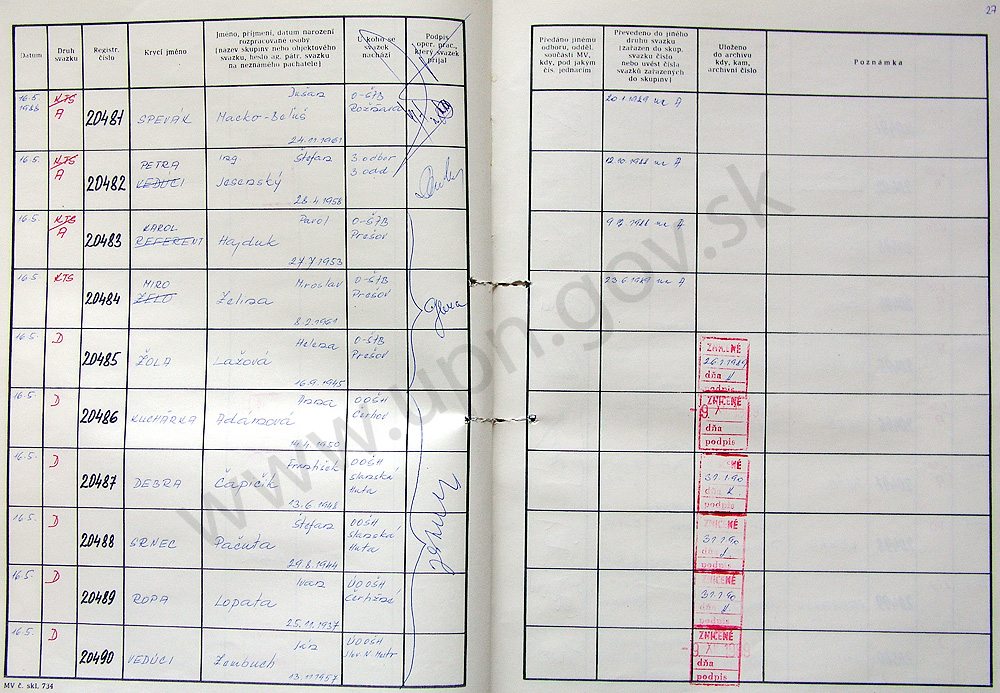 27
Datum
Druh svazku
Registr. číslo
Krycí jméno
Jméno, příjmení, datum narození rozpracované osoby
[název skupiny nebo objektového svazku, heslo ag. pátr. svazku na neznámého pachatele]
U koho se svazek nachází
Podpis oper. prac., který svazek přijal
Předáno jinému odboru, odděl. součásti MV, kdy, pod jakým čís. jednacím
Převedeno do jiného druhu svazku [zařazen do skup. svazku číslo nebo uvést čísla svazků zařazených do skupiny]
Uloženo do archivu kdy, kam, archivní číslo
Poznámka
16.5. 1988 KTS A 20481 SPEVÁK Dušan Macko-Beluš 24.11.1961 O-ŠTB Rožňava 20.1.1989 A
16.5. KTS A 20482 PETRA VEDÚCI Ing. Štefan Jesenský 28.4.1958 3. odbor 3 odd 12.10.1988 A
16.5. KTS A 20483 KAROL REFERENT Pavol Hajduk 27.7.1953 O-ŠTB Prešov A
16.5. KTS 20484 MIRO Miroslav Želina 8.2.1961 O-ŠTB Prešov 23.6.1989 A
16.5. D 20485 ŽOLA Helena Lažová 16.9.1945 O-ŠTB Prešov ZNIČENÉ 26.1.1989 dňa podpis
16.5. D 20486 KUCHÁRKA Anna Adámová 19.4.1950 OOŠH Čerhov ZNIČENÉ dňa podpis
16.5. D 20487 DEBRA František Čapičík 13.6.1948 OOŠH Slanská Huta ZNIČENÉ 31.1.90 dňa podpis
16.5. D 20488 SRNEC Štefan Pačuta 29.8.1944 OOŠH Slanská Huta ZNIČENÉ 31.1.90 dňa podpis
16.5. D 20489 ROPA Ivan Lopata 25.11.1937 ÚOOŠH ZNIČENÉ 31.1.90 dňa podpis
16.5. D 20490 VEDÚCI Ján Zambuch 13.11.1957 ÚOOŠH ZNIČENÉ dňa podpis
MV č. skl. 734
www.upn.gov.sk